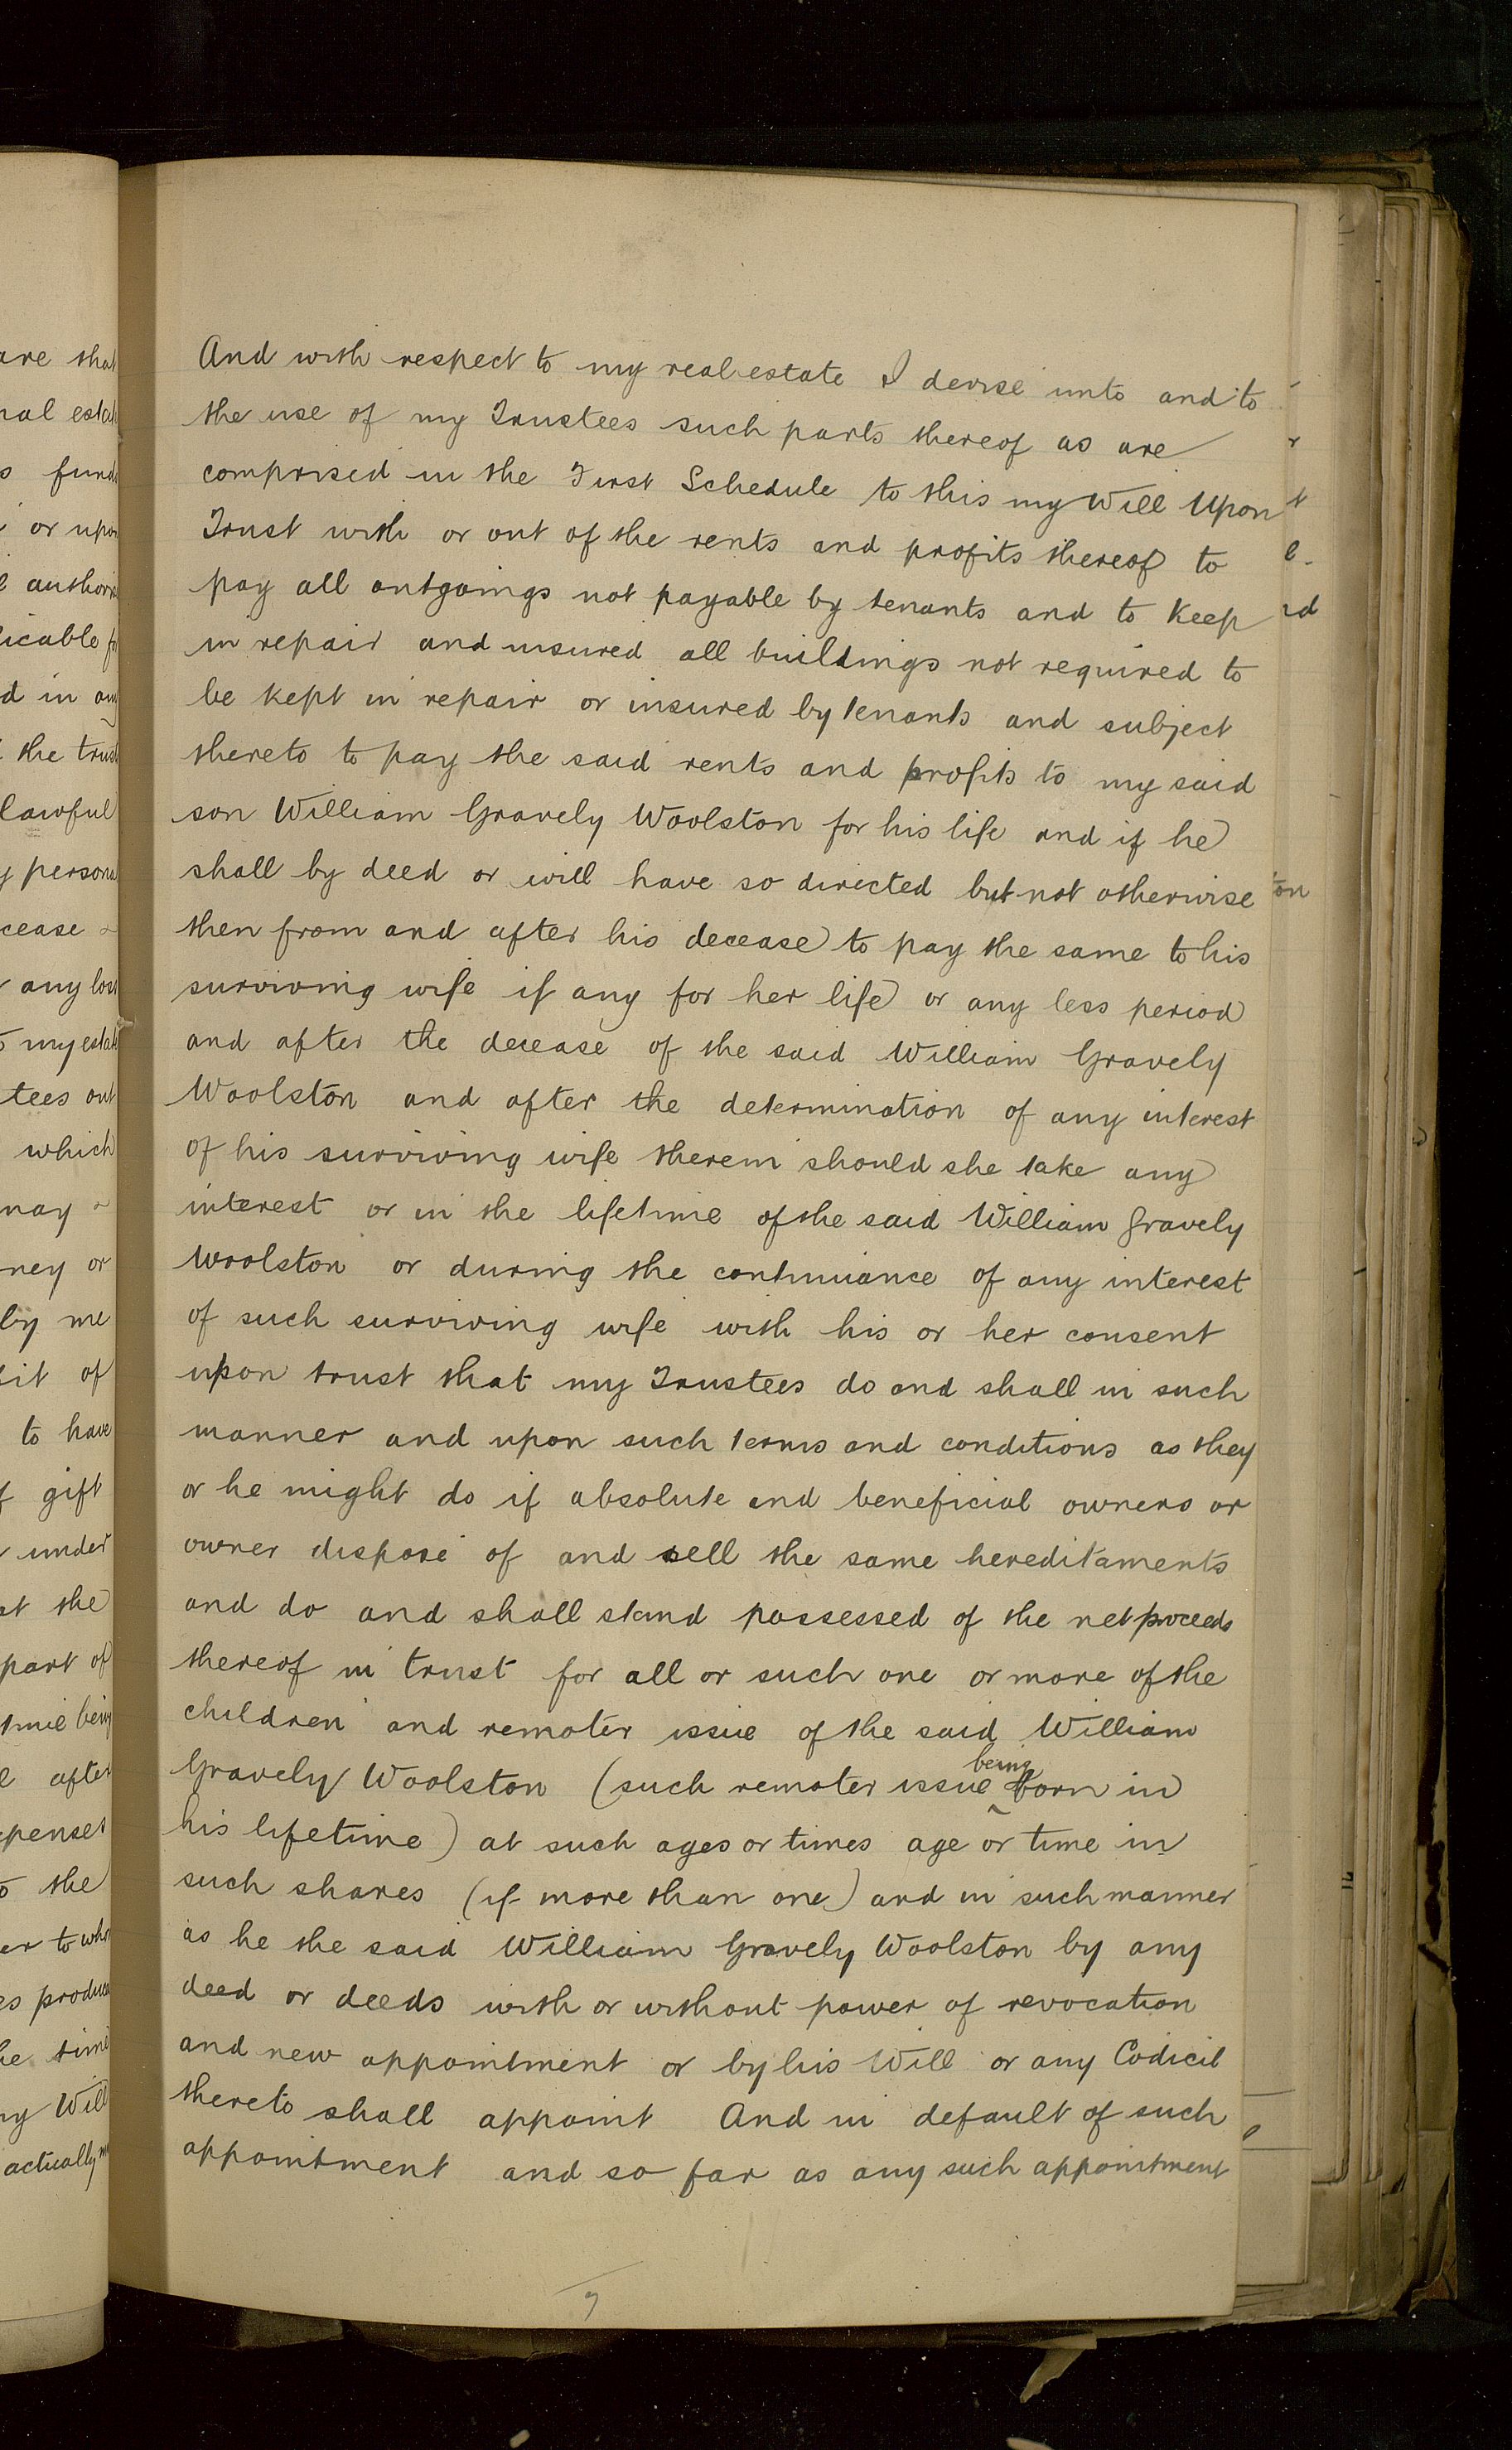 And with respect to my real estate I devise unto and to
the use of my Trustees such parts thereof as are
comprised in the First Schedule to this my Will Upon
Trust with or out of the rents and profits thereof to
pay all outgoings not payable by tenants and to keep
in repair and insured all buildings not required to
be kept in repair or insured by tenants and subject
thereto to pay the said rents and profits to my said
son William Gravely Woolston for his life and if he
shall by deed or will have so directed but not otherwise
then from and after his decease to pay the same to his
surviving wife if any for her life or any less period
and after the decease of the said William Gravely
Woolston and after the determination of any interest
of his surviving wife therein should she take any
interest or in the lifetime of the said William Gravely
Woolston or during the continuance of any interest
of such surviving wife with his or her consent
upon trust that my Trustees do and shall in such
manner and upon such terms and conditions as they
or he might do if absolute and beneficial owners or
owner dispose of and sell the same hereditaments
and do and shall stand possessed of the net proceeds
thereof in trust for all or such one or more of the
children and remoter issue of the said William
Gravely Woolston (such remoter issue being born in
his lifetime) at such ages or times age or time in
such shares (if more than one) and in such manner
as he the said William Gravely Woolston by any
deed or deeds with or without power of revocation
and new appointment or by his Will or any Codicil
thereto shall appoint And in default of such
appointment and so far as any such appointment